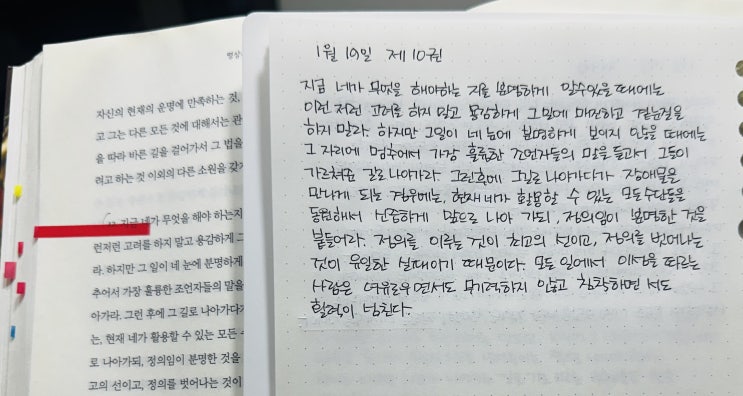 명상
자신의 현재의 운명에 만족하는 것,
고 그는 다른 모든 것에 대해서는 관
을 따라 바른 길을 걸어가서 그 법을
려고 하는 것 이외의 다른 소원을 갖지
12 지금 네가 무엇을 해야 하는지
런저런 고려를 하지 말고 용감하게 그
라. 하지만 그 일이 네 눈에 분명하게
추어서 가장 훌륭한 조언자들의 말을
아가라. 그런 후에 그 길로 나아가다가
는, 현재 네가 활용할 수 있는 모든 수
로 나아가되, 정의임이 분명한 것을
고의 선이고, 정의를 벗어나는 것이
1월 19일 제10권
지금 네가 무엇을 해야하는 지를 분명하게 알수있을 때에는
이런 저런 고려를 하지 말고 용감하게 그 일에 매진하고 곁눈질을
하지 말라. 하지만 그일이 네 눈에 분명하게 보이지 않을 때에는
그 자리에 멈추어서 가장 훌륭한 조언자들의 말을 듣고서 그들이
가르쳐준 길로 나아가라 그런후에 그길로 나아가다가 장애물을
만나게 되는 경우에는, 현재 네가 활용할 수 있는 모든수단들을
동원해서 신중하게 앞으로 나아 가되, 정의임이 분명한 것을
붙들어라. 정의를 이루는 것이 최고의 선이고, 정의를 벗어나는
것이 유일한 실패이기 때문이다. 모든 일에서 이성을 따르는
사람은 여유로우면서도 무기력하지 않고 침착하면 서도
활력이 넘친다.